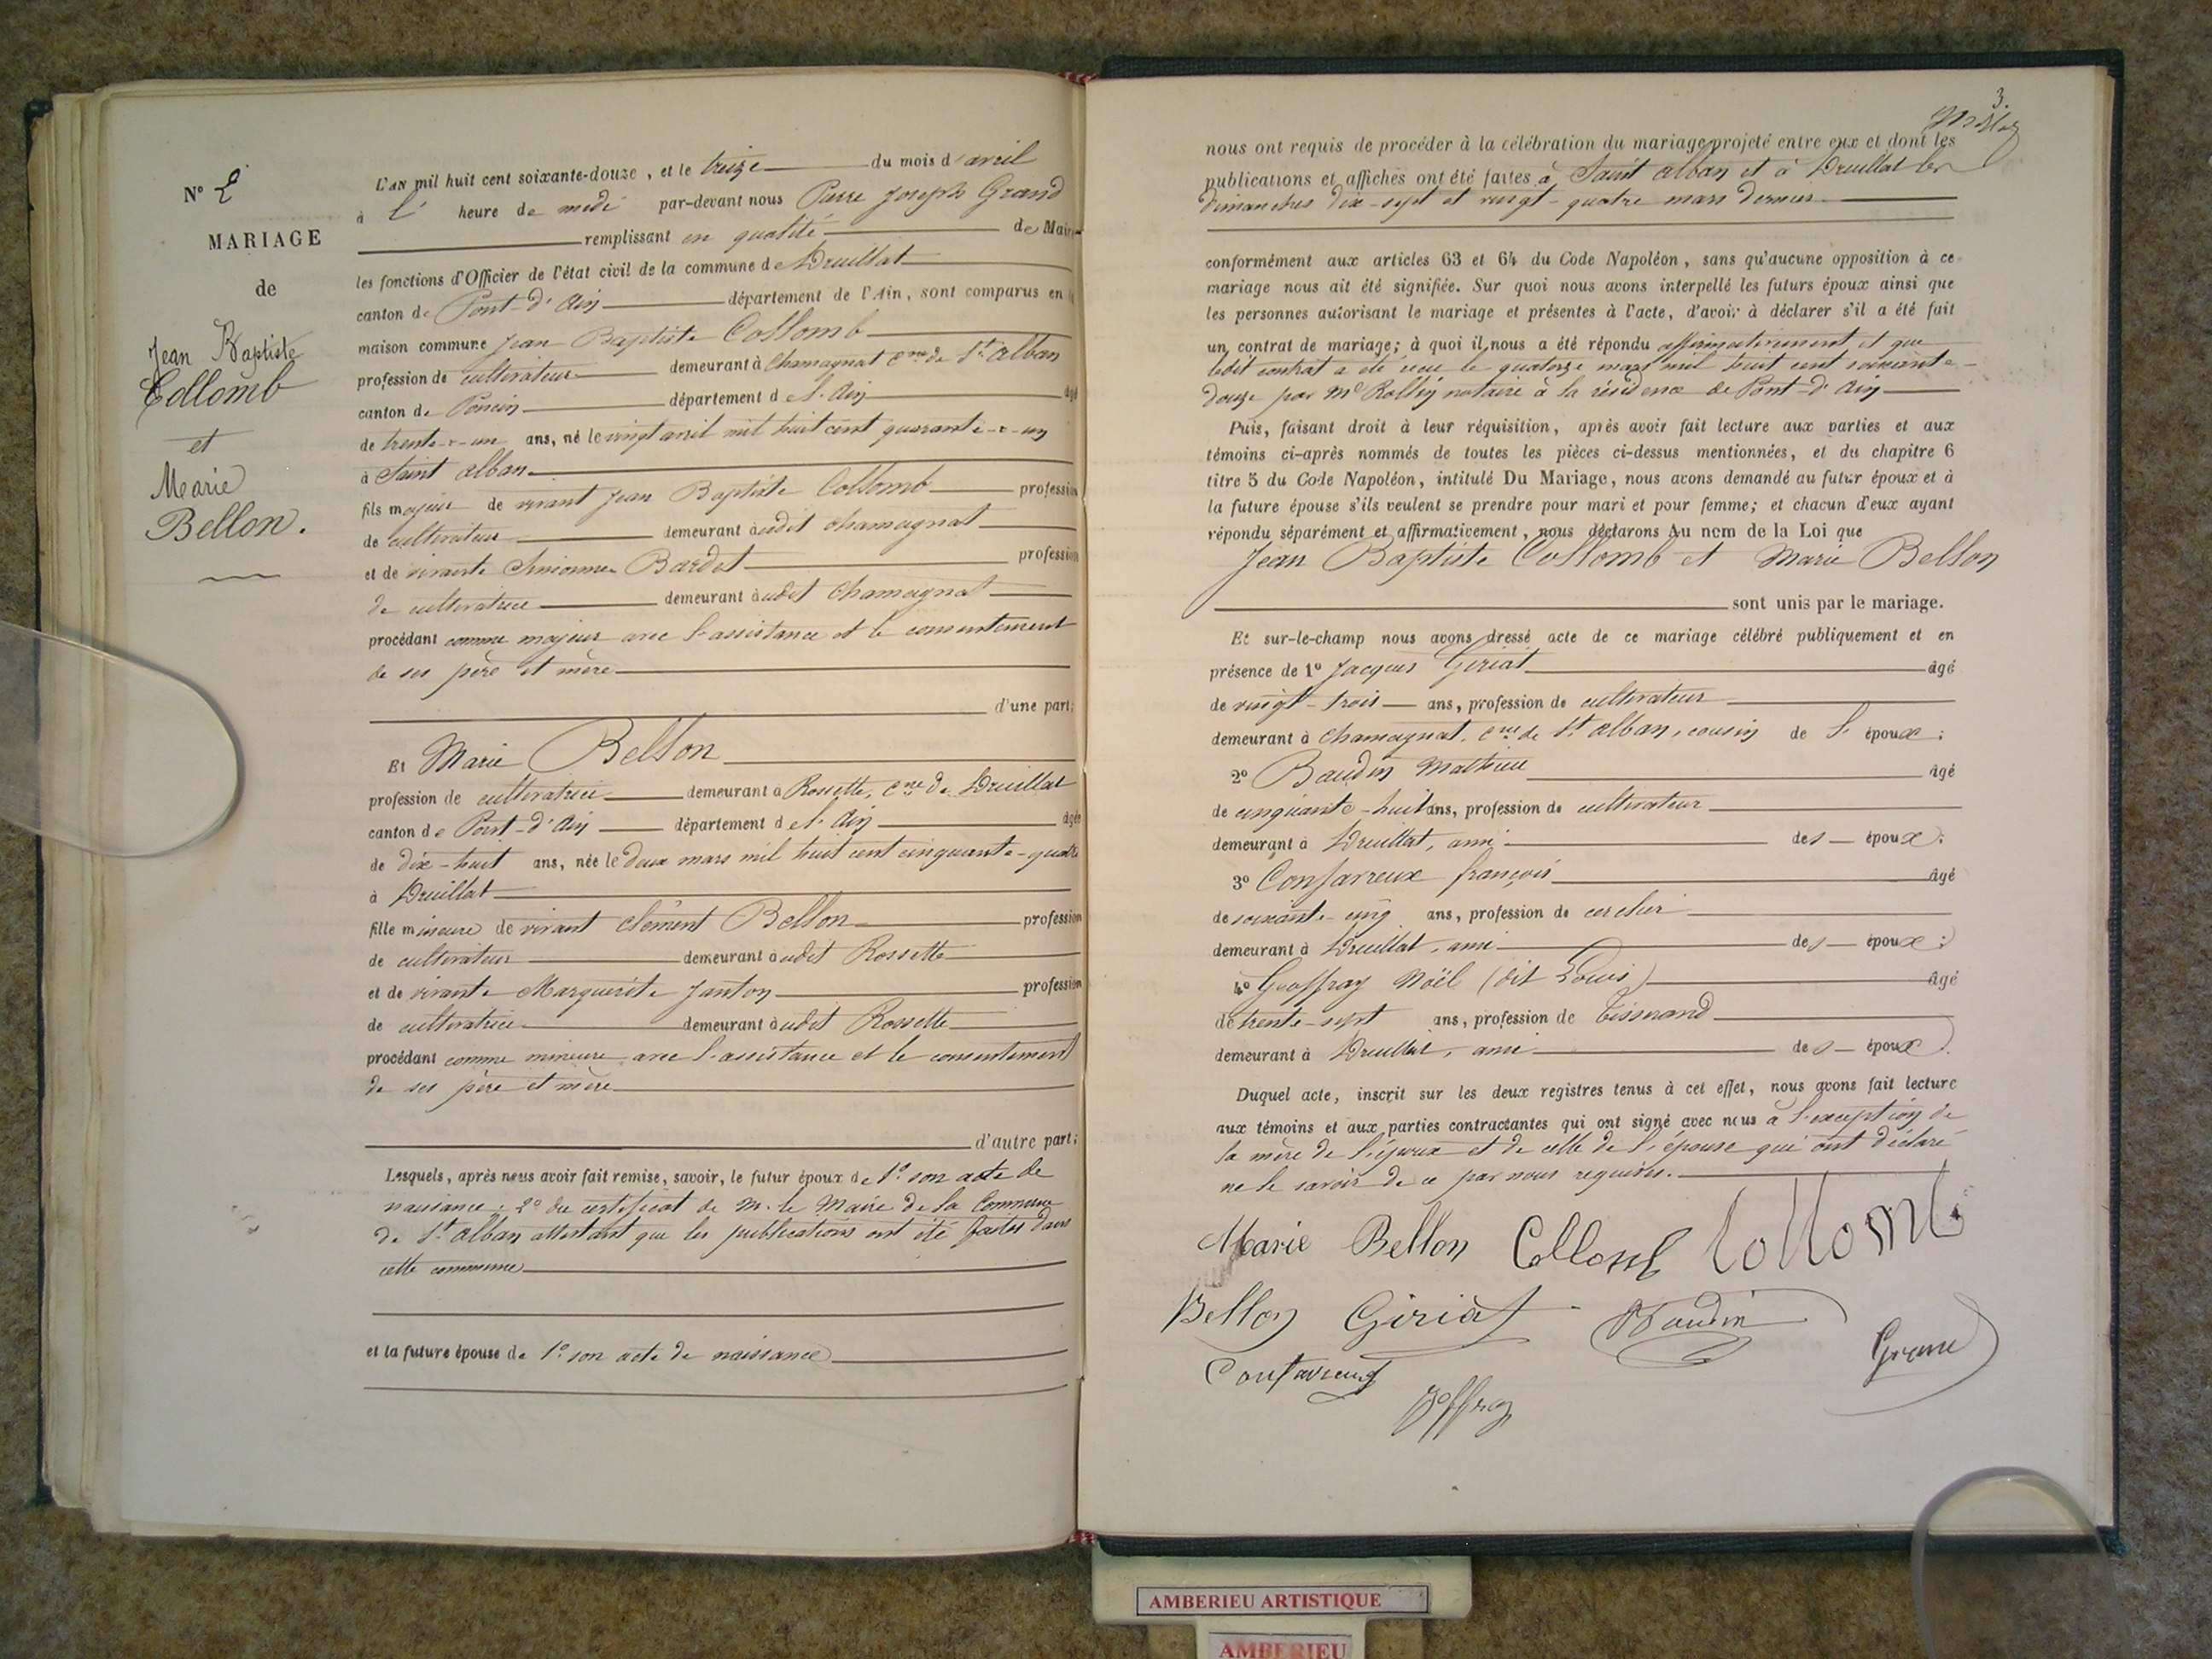 N° 2
MARIAGE
de
Jean Baptiste
Collomb
et
Marie
Bellon.
L'AN mil huit cent soixante-douze, et le treize du mois d'avril
à l' heure de midi par-devant nous Pierre Joseph Grand
remplissant en qualité de Maire
les fonctions d'Officier de l'état civil de la commune de Druillat
canton de Pont-d'Ain département de l'Ain, sont comparus en la
maison commune Jean Baptiste Collomb
profession de cultivateur demeurant à Chamagnat Cne de St alban
canton de Poncin département de l'Ain âgé
de trente-e-un ans, né le vingt avril mil huit cent quarante-e-un
à Saint alban
fils majeur de vivant Jean Baptiste Collomb profession
de cultivateur demeurant audit Chamagnat
et de vivante Bardet profession
de cultivatrice demeurant audit Chamagnat
procédant comme majeur avec l'assistance et le consentement
de ses père et mère
d'une part;
Et Marie Bellon
profession de cultivatrice demeurant à Rossette, Cne de Druillat
canton de Pont-d'Ain département de l'Ain âgée
de dix-huit ans, née le deux mars mil huit cent cinquante-quatre
à Druillat
fille mineure de vivant Clément Bellon profession
de cultivateur demeurant audit Rossette
et de vivante Marguerite Janton profession
de cultivatrice demeurant audit Rossette
procédant comme mineure avec l'assistance et le consentement
de ses père et mère
d'autre part;
Lesquels, après nous avoir fait remise, savoir, le futur époux de 1° son acte de
naissance; 2° du certificat de M. le Maire de la Commune
de St alban attestant que les publications ont été faites dans
cette commune
et la future épouse de 1° son acte de naissance
3.
nous ont requis de procéder à la célébration du mariage projeté entre eux et dont les
publications et affiches ont été faites à Saint alban et à Druillat les
dimanches dix-sept et vingt-quatre mars dernier
conformément aux articles 63 et 64 du Code Napoléon, sans qu'aucune opposition à ce
mariage nous ait été signifiée. Sur quoi nous avons interpellé les futurs époux ainsi que
les personnes autorisant le mariage et présentes à l'acte, d'avoir à déclarer s'il a été fait
un contrat de mariage; à quoi il nous a été répondu affirmativement et que
ledit contrat a été reçu le quatorze mars mil huit cent soixante-
douze par Me Rollin notaire à la résidence de Pont-d'Ain
Puis, faisant droit à leur réquisition, après avoir fait lecture aux parties et aux
témoins ci-après nommés de toutes les pièces ci-dessus mentionnées, et du chapitre 6
titre 5 du Code Napoléon, intitulé Du Mariage, nous avons demandé au futur époux et à
la future épouse s'ils veulent se prendre pour mari et pour femme; et chacun d'eux ayant
répondu séparément et affirmativement, nous déclarons Au nom de la Loi que
Jean Baptiste Collomb et Marie Bellon
sont unis par le mariage.
Et sur-le-champ nous avons dressé acte de ce mariage célébré publiquement et en
présence de 1° Jacques Giriat âgé
de vingt-trois ans, profession de cultivateur
demeurant à Chamagnat, Cne de St alban, cousin de l' époux;
2° Baudin Mathieu âgé
de cinquante-huit ans, profession de cultivateur
demeurant à Druillat, ami des époux;
3° Confavreux françois âgé
de soixante-cinq ans, profession de cerclier
demeurant à Druillat, ami des époux;
4° Geoffray Noël (dit Louis) âgé
de trente-sept ans, profession de Tisserand
demeurant à Druillat, ami des époux.
Duquel acte, inscrit sur les deux registres tenus à cet effet, nous avons fait lecture
aux témoins et aux parties contractantes qui ont signé avec nous à l'exception de
la mère de l'époux et de celle de l'épouse qui ont déclaré
ne le savoir de ce par nous requises.
Marie Bellon Collomb Collomb
Bellon Giriat Baudin
Grand
Confavreux
Joffray
AMBERIEU ARTISTIQUE
AMBERIEU